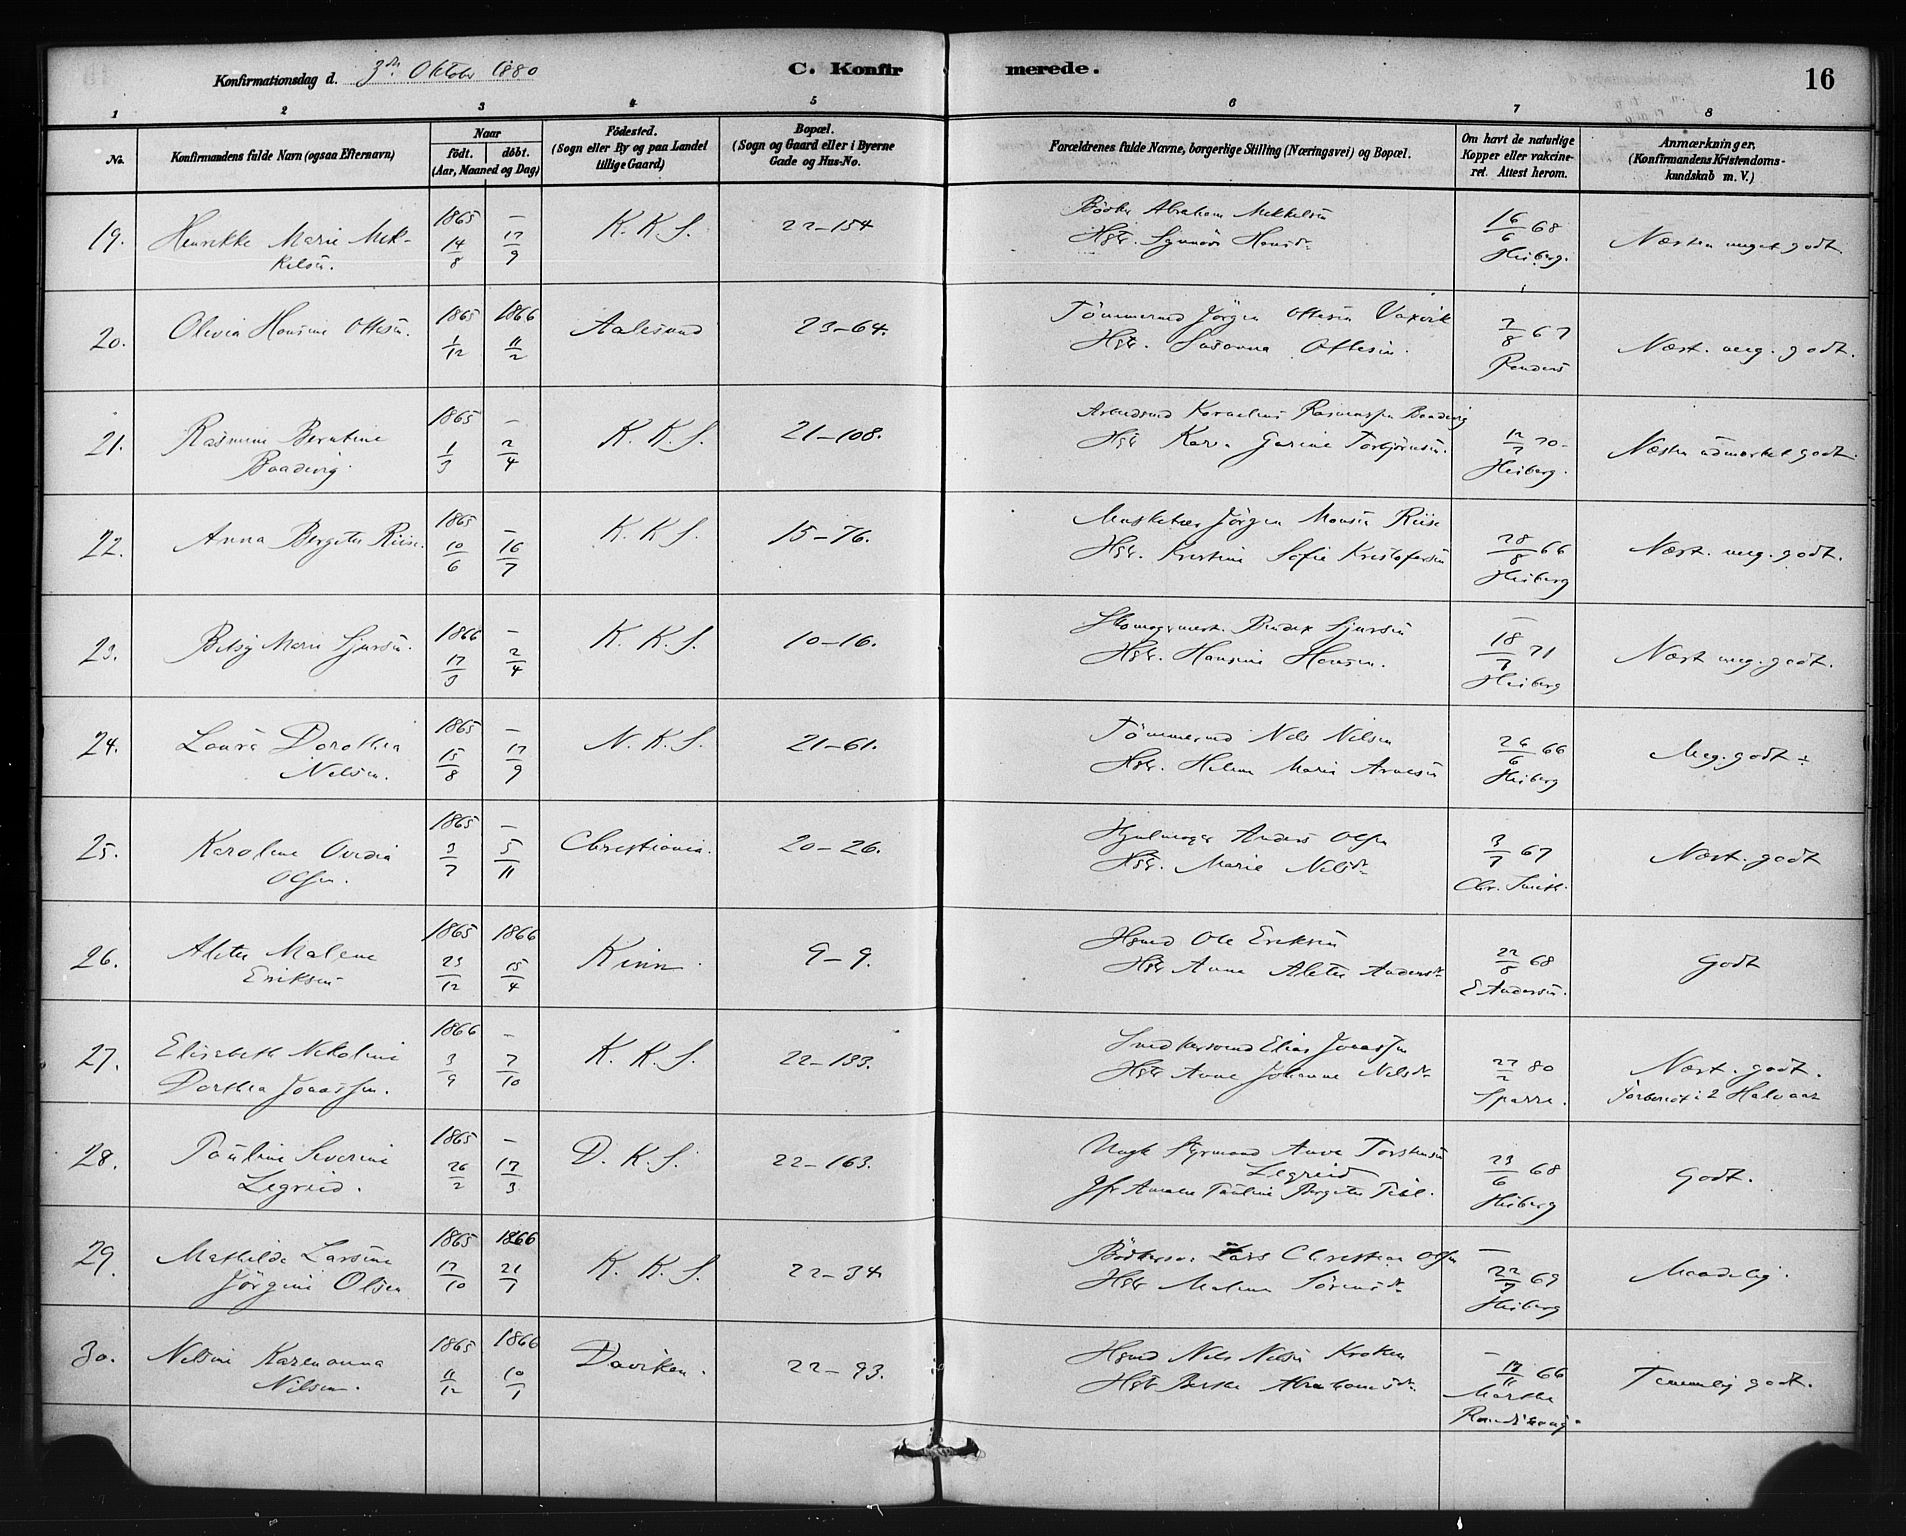 Konfirmationsdag d. 3die Oktober 1880
C. Konfirmerede.
16
1 2 3 4 5 6 7 8
No.
Konfirmandens fulde Navn (ogsaa Efternavn)
Naar
födt. döbt.
(Aar, Maaned og Dag)
Födested.
(Sogn eller By og paa Landet
tillige Gaard)
Bopæl.
(Sogn og Gaard eller i Byerne
Gade og Hus-No.
Forældrenes fulde Navne, borgerlige Stilling (Næringsvei) og Bopæl.
Om havt de naturlige
Kopper eller vakcine-
ret. Attest herom.
Anmærkninger.
(Konfirmandens Kristendoms-
kundskab m. V.)
19. Henrikke Marie Mek-
kelsen.
1865 14/8 – 17/9
K. K. S.
22-154
Abraham Mekkelsen
Hstr. Synnöve Hansdr
16/6 68 Heiberg.
Næsten meget godt
20. Olivia Hansine Ottesen.
1865 1/12 1866 11/2
Aalesund
23-64.
Tömmermd Jörgen Ottesen Vaxvik
Hstr. Susanna Ottesen.
7/8 67
Næst. meg. godt.
21. Rasmine Berntine
Baadevig.
1865 1/3 – 2/4
K. K. S.
21-108.
Arbeidsmd Kornelius Rasmussen Baadevig
Hstr. Karen Gurine Torbjörnsen.
12/7 70 Heiberg.
Næsten udmærket godt.
22. Anna Bergitte Riise.
1865 10/6 – 16/7
K. K. S.
15-76.
Musketeer Jörgen Monsen Riise
Hstr. Kristine Sofie Kristofersen
28/8 66 Heiberg
Næst. meg. godt.
23. Betsy Marie Sjursen.
1866 17/3 – 2/4
K. K. S.
10-16.
Skomagermest. Bendix Sjursen
Hstr. Hansine Hansen.
– 18/7 71 Heiberg
Næst meg. godt.
24. Laura Dorothea
Nilsen.
1865 15/8 – 17/9
N. K. S.
21-61.
Tömmermd Nils Nilsen
Hstr. Helene Marie Arnesen
26/6 66 Heiberg
Meg. godt ÷
25. Karoline Ovedia
Olsen.
1865 3/7 – 5/11
Christiania.
20-26.
Hjulmager Anders Olsen
Hstr. Marie Nilsdr
3/7 67 Chr. Smith.
Næst. godt
26. Alette Malene
Eriksen
1865 23/12 1866 15/4
Kinn
9-9.
Hsmd Ole Eriksen
Hstr Anne Alette Andersdr
22/8 68 E Andersen.
Godt
27. Elisabeth Nikoline
Dorthea Jonassen.
1866 3/9 – 7/10
K. K. S.
22-183.
Snedkersvend Elias Jonassen
Hstr Anne Johanne Nilsdr
27/2 80 Sparre.
Næst. godt.
Forberedt i 2 Halvaar
28. Pauline Severine
Legreid.
1865 26/2 – 17/3
D. K. S.
22-163.
Ungk Styrmand Anve Torstensen
Legreid
Jfr Amalie Pauline Bergitte
23/6 68 Heiberg
Godt.
29. Mathilde Larsine
Jörgine Olsen
1865 17/10 1866 21/1
K. K. S.
22-34
Lars Christian Olsen
Hstr Malene Sörensdr
– 22/7 69 Heiberg
Maadelig.
30. Nilsine Karenanna
Nilsen.
1865 11/12 1866 10/1
Daviken.
22-93.
Hsmd Nils Nilsen Kroken
Hstr Berthe Abrahamsdr
– 66 Marthe
Temmelig godt.